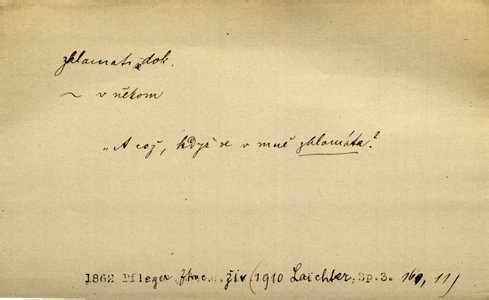 zklamati dok.
~ v někom
„A což, když se v mně zklamáta?
1862 Pfleger, Ztrac. živ (1910 Laichter, Sp.3. 160, 11)